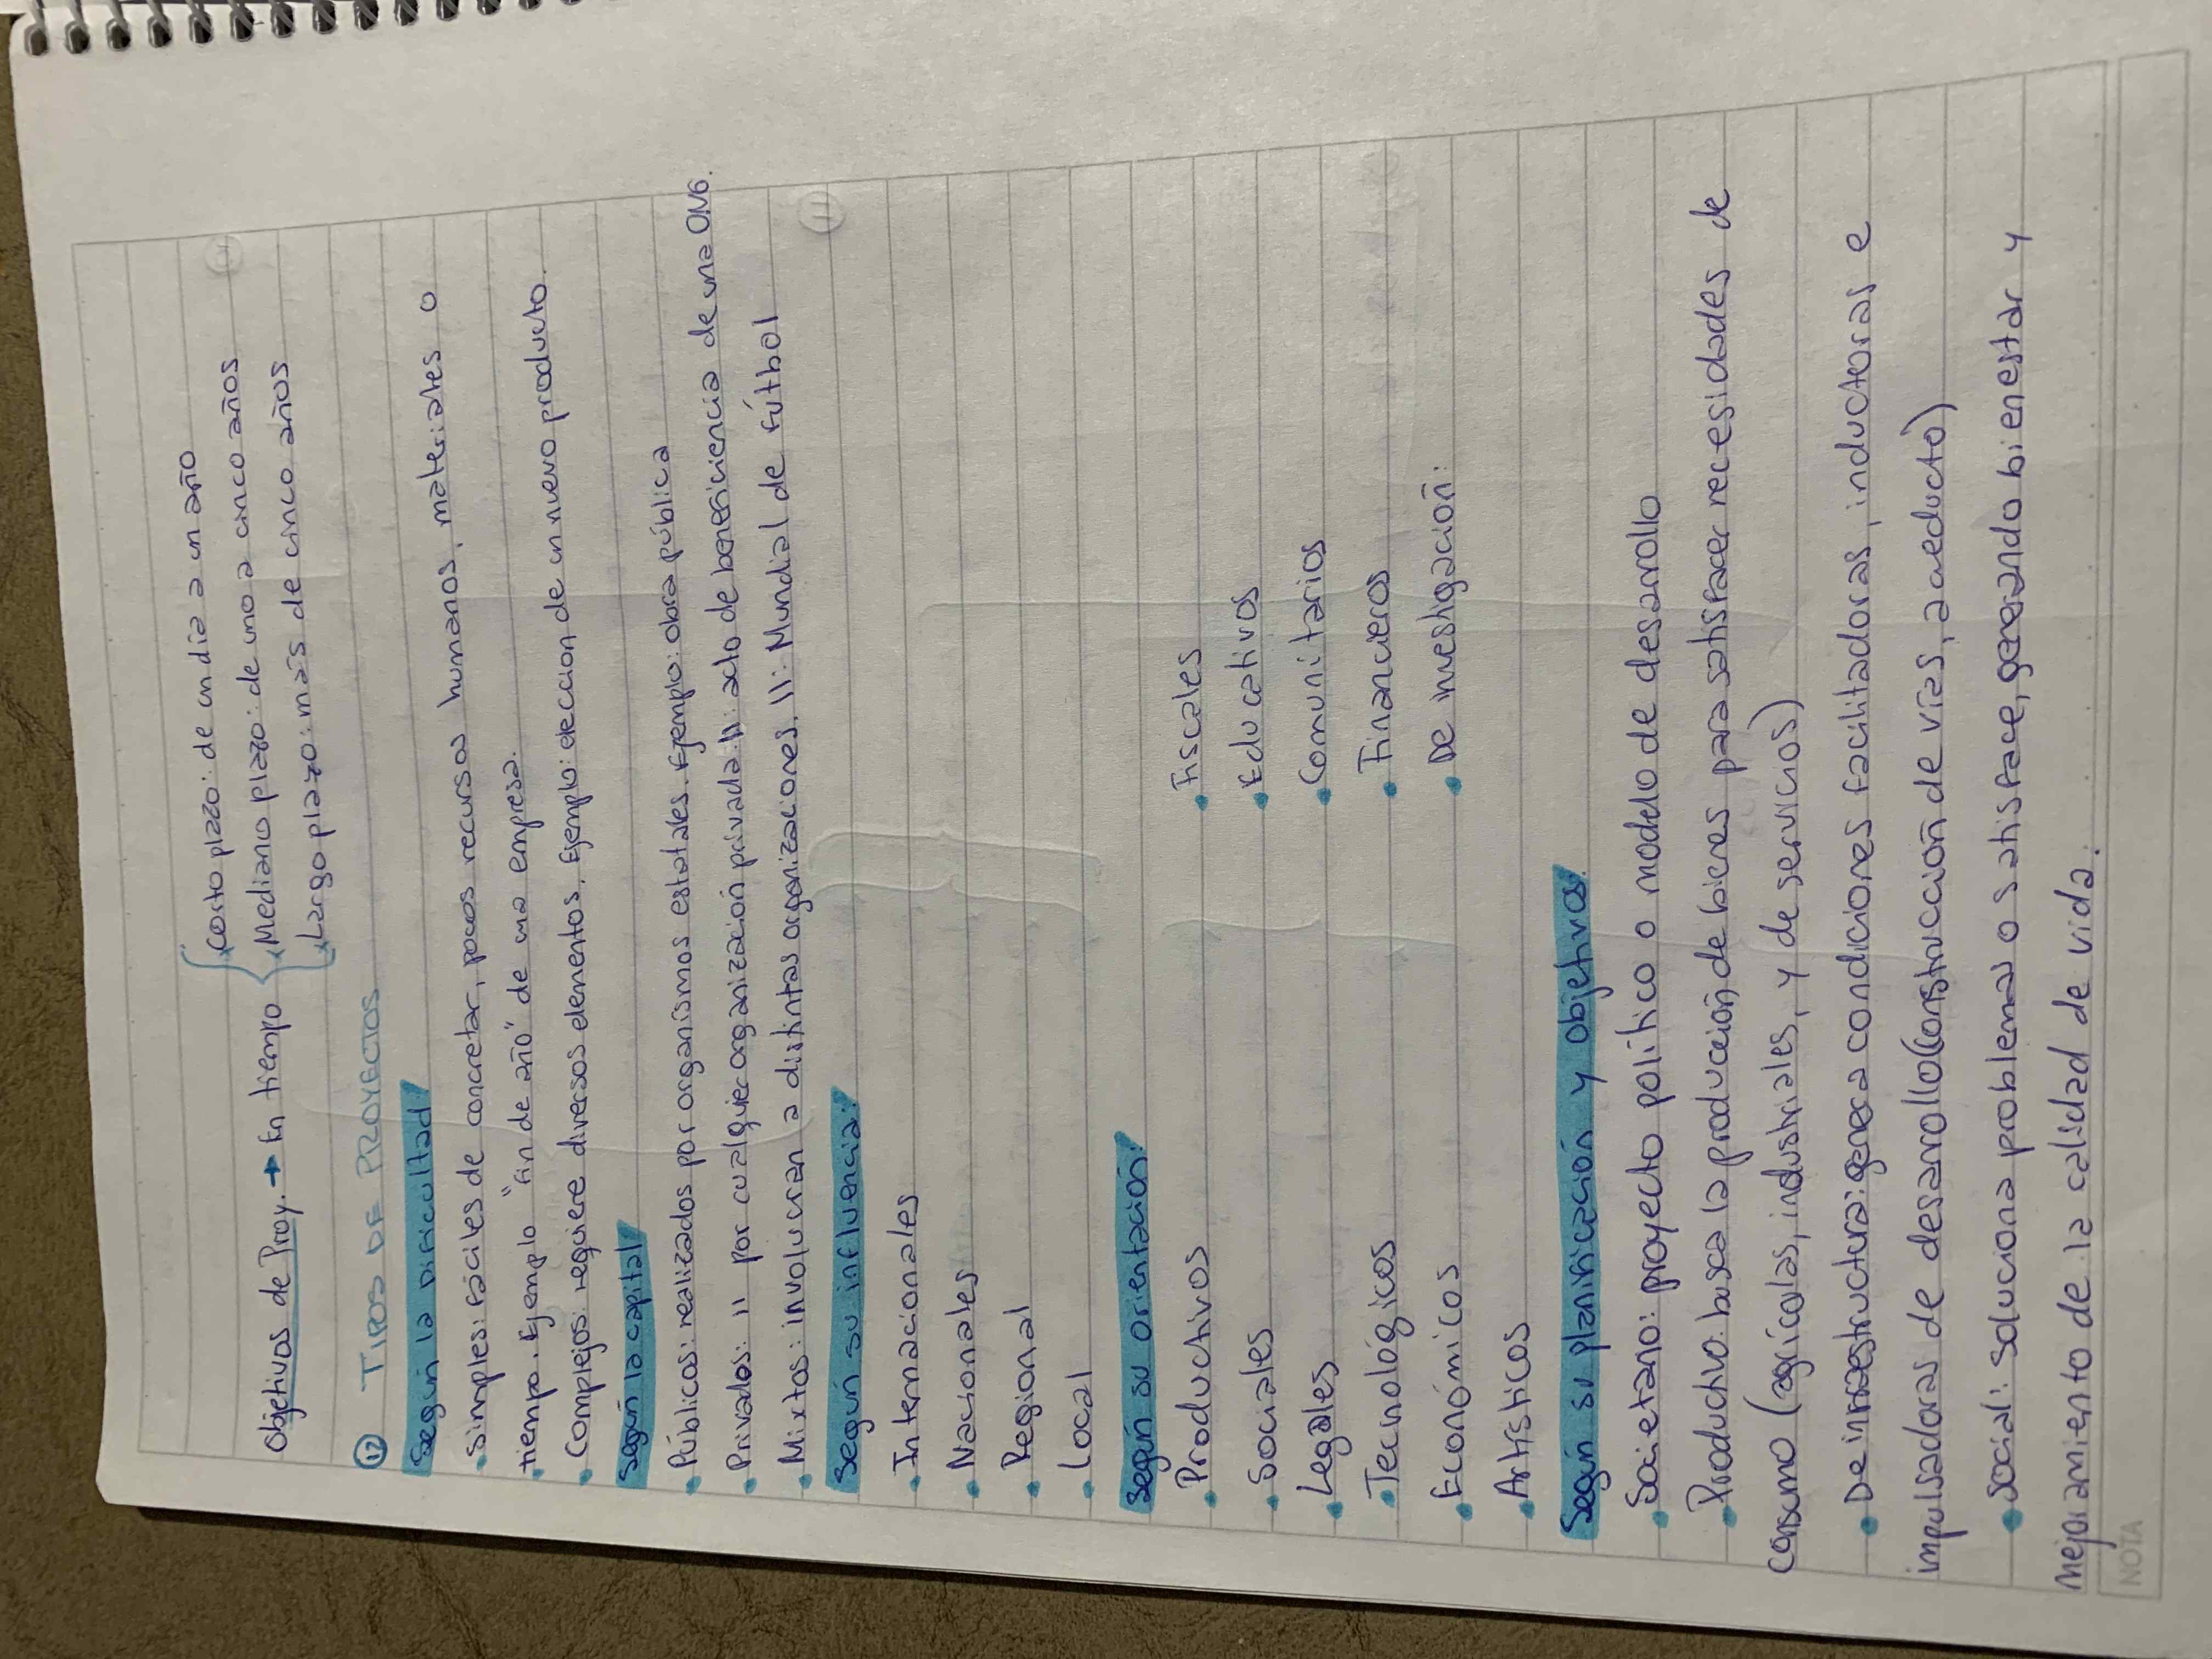 Corto plazo: de un dia a un año
Objetivos de Proy. → En tiempo { Mediano plazo: de uno a cinco años
Largo plazo: más de cinco años
12 TIPOS DE PROYECTOS
Según la Dificultad:
• Simples: Fáciles de concretar, pocos recursos humanos, materiales o
• tiempo. Ejemplo "fin de año" de una empresa.
• Complejos: requiere diversos elementos. Ejemplo: eleccion de un nuevo producto.
Según la capital
• Públicos: realizados por organismos estatales. Ejemplo: obra pública
• Privados: 11 por cualquier organización privada. 11: acto de beneficiencia de una ONG.
• Mixtos: involucran a distintas organizaciones. 11: Mundial de Fútbol
Según su influencia:
• Internacionales
• Nacionales
• Regional
• Local
Según su Orientación:
• Productivos • Fiscales
• Sociales • Educativos
• Legales • Comunitarios
• Tecnológicos • Financieros
• Económicos • De investigación:
• Artísticos
Según su planificación y objetivos:
• Societario: proyecto político o modelo de desarrollo
• Productivo: busca la producción de bienes para satisfacer necesidades de
consumo (agrícolas, industriales, y de servicios)
• De infraestructura: genera condiciones facilitadoras, inductoras e
impulsadoras de desarrollo (construcción de vías, acueducto)
• social: soluciona problemas o satisface, generando bienestar y
mejoramiento de la calidad de vida.
NOTA